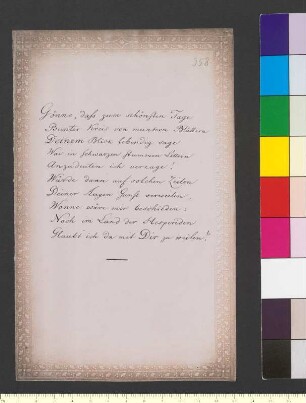 358
Gönne, daß zum schönsten Tage
Breiter Kreis von muntren Blättern
Deinem Blick lebendig sage
Was in schwarzen krummen Lettern
Anzudeuten ich verzage!
Würde dann auf solchen Zeilen
Deiner Augen Gunst verweilen,
Wonne wäre mir beschieden:
Noch im Land der Hesperiden
Glaubt ich da mit Dir zu weilen.